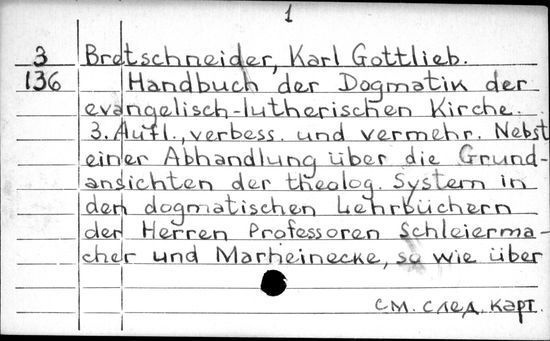 1
3 Bretschneider, Karl Gottlieb.
136 Handbuch der Dogmatik der
evangelisch-lutherischen Kirche.
3. Aufl., verbess. und vermehr. Nebst
einer Abhandlung über die Grund-
ansichten der theolog. System in
den dogmatischen Lehrbüchern
der Herren Professoren Schleierma-
cher und Marheinecke, so wie über
см. след. карт.